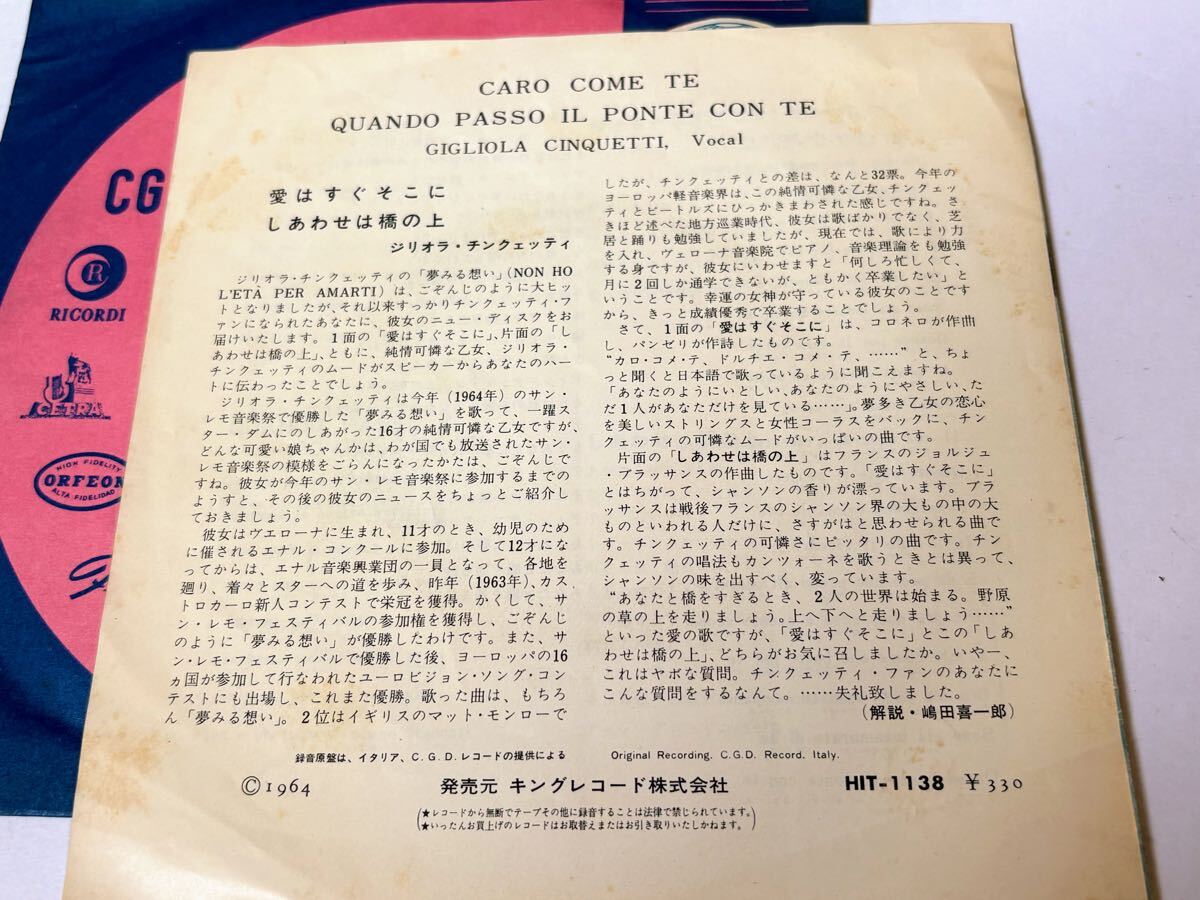 CG
RICORDI
CETRA
HIGH FIDELITY
ORFEON
ALTA FIDELIDAD
CARO COME TE
QUANDO PASSO IL PONTE CON TE
GIGLIOLA CINQUETTI, Vocal
愛はすぐそこに
しあわせは橋の上
ジリオラ・チンクェッティ
ジリオラ・チンクェッティの「夢みる想い」(NON HO
L'ETÀ PER AMARTI)は、ごぞんじのように大ヒッ
トとなりましたが、それ以来すっかりチンクェッティ・フ
ァンになられたあなたに、彼女のニュー・ディスクをお
届けいたします。1面の「愛はすぐそこに」、片面の「し
あわせは橋の上」、ともに、純情可憐な乙女、ジリオラ・
チンクェッティのムードがスピーカーからあなたのハー
トに伝わったことでしょう。
ジリオラ・チンクェッティは今年(1964年)のサン・
レモ音楽祭で優勝した「夢みる想い」を歌って、一躍ス
ター・ダムにのしあがった16才の純情可憐な乙女ですが、
どんな可愛い娘ちゃんかは、わが国でも放送されたサン・
レモ音楽祭の模様をごらんになったかたは、ごぞんじで
すね。彼女が今年のサン・レモ音楽祭に参加するまでの
ようすと、その後の彼女のニュースをちょっとご紹介し
ておきましょう。
彼女はヴエローナに生まれ、11才のとき、幼児のため
に催されるエナル・コンクールに参加。そして12才にな
ってからは、エナル音楽興業団の一員となって、各地を
廻り、着々とスターへの道を歩み、昨年(1963年)、カス
トロカーロ新人コンテストで栄冠を獲得。かくして、サ
ン・レモ・フェスティバルの参加権を獲得し、ごぞんじ
のように「夢みる想い」が優勝したわけです。また、サ
ン・レモ・フェスティバルで優勝した後、ヨーロッパの16
ヵ国が参加して行なわれたユーロビジョン・ソング・コン
テストにも出場し、これまた優勝。歌った曲は、もちろ
ん「夢みる想い」。2位はイギリスのマット・モンローで
したが、チンクェッティとの差は、なんと32票。今年の
ヨーロッパ軽音楽界は、この純情可憐な乙女、チンクェッ
ティとビートルズにひっかきまわされた感じですね。さ
きほど述べた地方巡業時代、彼女は歌ばかりでなく、芝
居と踊りも勉強していましたが、現在では、歌により力
を入れ、ヴェローナ音楽院でピアノ、音楽理論をも勉強
する身ですが、彼女にいわせますと「何しろ忙しくて、
月に2回しか通学できないが、ともかく卒業したい」と
いうことです。幸運の女神が守っている彼女のことです
から、きっと成績優秀で卒業することでしょう。
さて、1面の「愛はすぐそこに」は、コロネロが作曲
し、パンゼリが作詩したものです。
“カロ・コメ・テ、ドルチエ・コメ・テ、……”と、ちょ
っと聞くと日本語で歌っているように聞こえますね。
「あなたのようにいとしい、あなたのようにやさしい、た
だ1人があなただけを見ている……」。夢多き乙女の恋心
を美しいストリングスと女性コーラスをバックに、チン
クェッティの可憐なムードがいっぱいの曲です。
片面の「しあわせは橋の上」はフランスのジョルジュ・
ブラッサンスの作曲したものです。「愛はすぐそこに」
とはちがって、シャンソンの香りが漂っています。ブラ
ッサンスは戦後フランスのシャンソン界の大もの中の大
ものといわれる人だけに、さすがはと思わせられる曲で
す。チンクェッティの可憐さにピッタリの曲です。チン
クェッティの唱法もカンツォーネを歌うときとは異って、
シャンソンの味を出すべく、変っています。
“あなたと橋をすぎるとき、2人の世界は始まる。野原
の草の上を走りましょう。上へ下へと走りましょう……”
といった愛の歌ですが、「愛はすぐそこに」とこの「しあ
わせは橋の上」、どちらがお気に召しましたか。いやー、
これはヤボな質問。チンクェッティ・ファンのあなたに
こんな質問をするなんて。……失礼致しました。
(解説・嶋田喜一郎)
録音原盤は、イタリア、C.G.D.レコードの提供による Original Recording. C.G.D. Record. Italy.
©1964 発売元 キングレコード株式会社 HIT-1138 ¥330
(★レコードから無断でテープその他に録音することは法律で禁じられています。
★いったんお買上げのレコードはお取替えまたはお引き取りいたしかねます。)